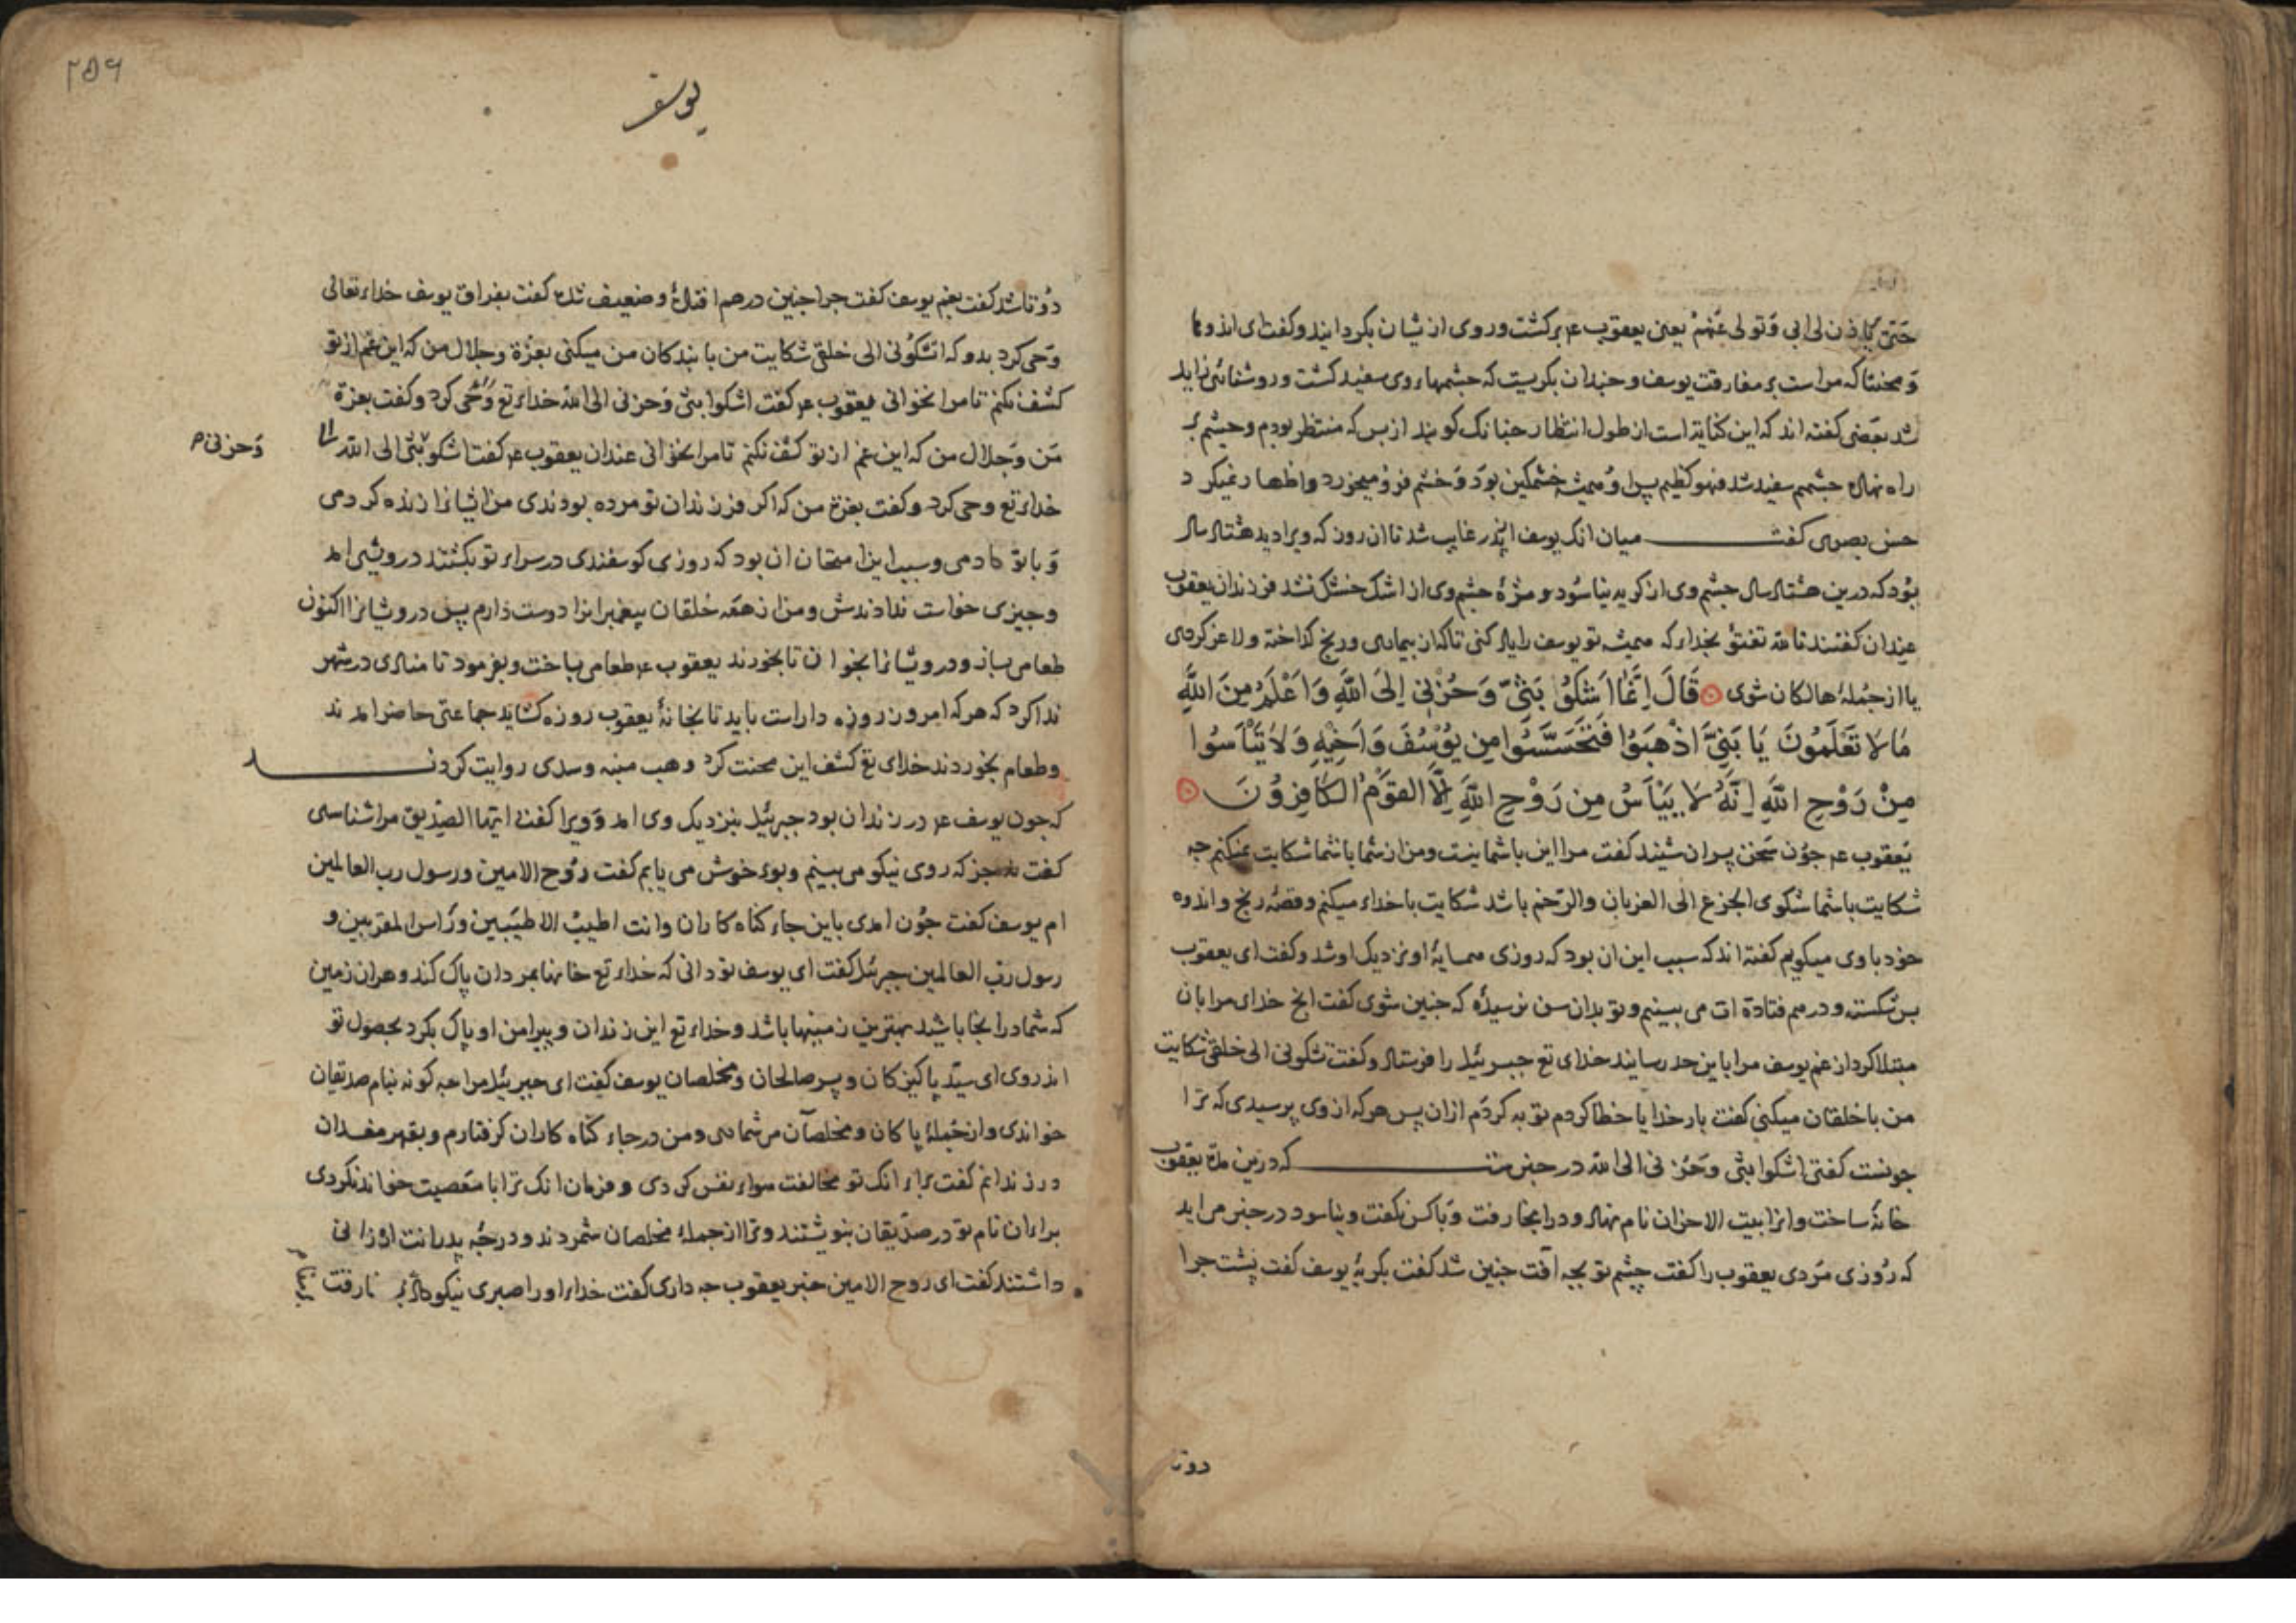 حَتّى یَاذن لی ابی وَتولی عَنهُمْ یعنی یعقوب عم برکشت وروی از یشان بکردانید وکفت ای اندوها
وَمحنتا که مراست بر مفارقت یوسف وجندان بکریست که جشمهاء وی سفید کشت وروشنائی زاید
شد بعَضی کفته اند که این کنایة است از طول انتظار جنانک کویند از بس که منتظر بودم وجشم بر
راه نهادم جشمم سفید شد فهو کظیم بس او همیشه خشمکین بوَد وَخشم فرو میخورد واظهار نمیکرد
حسن بصری کفت میان انک یوسف از پذر غایب شد تا ان روز که ویرا دید هشتاد سال
بوُد که درین هشتاد سال جشم وی از کریه نیاسُود ومژهٔ جشم وی از اشک خشک نشد فرزندان یعقوب
عندان کفتند تالله تفتؤ بخداء که همیشه تو یوسف را یاد کنی تا که از بیماری ورنج کداخته ولاغر کردی
یا از جمُلهٔ هالکان شوی قَالَ اِنَّمَا اَشكُوُ بَثّىِ وَحُزْنى اِلىَ اللّهِ وَاَعْلَمُ مِنَ اللَّهِ
مَالاَ تَعْلَمُونَ يَا بَنِىَّ اذْهَبَوُا فَتَحَسَّسَوُا مِن يُوُسُفَ وَاَخِيْهِ وَلاَ تَيْأَسُوا
مِنْ رَوْحِ اللّهِ اِنَّهُ لاَ يَيْأَسُ مِن رَوْحِ اللّهِ اِلَّا القَوَمُ الكَافِرُوُنَ
یَعقوب عم جوُن سَخن پسران شنید کفت مرا این با شما نیست ومن از شما با شما شکایت نمیکنم جه
شکایت با شما شکوی الجزع الی الغربان والرّخم باشد شکایت با خداء میکنم وقصّهٔ رنج واندوه
خود با وی میکویم کفته اند که سبب این ان بود که روزی همسایهٔ او نزدیک او شد وکفت ای یعقوب
بس شکسته ودرهم فتادهٔ ات می بینیم وتو بدان سن نرسیدهٔ که جنین شوی کفت انج خدای مرا بان
مبتلا کرد از غم یوسف مرا باین حد رسانید خدای تع جبرئیل را فرستاد وکفت تشکونی الی خلقی شکایت
من با خلقان میکنی کفت بار خدایا خطا کردم توبه کردَم ازان پس هرکه از وی پرسیدی که ترا
جونست کفتی اشکوا بثی وحَزنی الی الله در خبرست که درین مدّة یعقوب
خانهٔ ساخت وانرا بیت الاحزان نام نهاد ودر انجا رفت وَبا کس نکفت ونیاسود در خبر می اید
که روُزی مرَدی یعقوب را کفت چشم تو بجه آفت جنین شد کفت بکریهٔ یوسف کفت پشت جرا
دوتا
۲۵۶
یوسف
دوُتا شد کفت بغم یوسف کفت جرا جنین درهم افتادهٔ وضعیف شده کفت بفراق یوسف خداء تعالی
وَحی کرد بدو که اتشکوُنی الی خلقی شکایت من با بندکان من میکنی بعزّة وجلال من که این غم از تو
کشف نکنم تا مرا نخوانی یعقوب عم کفت اشکوا بثی وَحزنی الی الله خداء تع وَحی کرد وکفت بعزة
مَن وَجلال من که این غم از تو کشف نکنم تا مرا نخوانی عندان یعقوب عم کفت اشکو بَثی الی الله
وَحزنی
خداء تع وحی کرد وکفت بعزة من که اکر فرزندان تو مرده بودندی من ایشانرا زنده کردمی
وَبا تو دادمی وسبب این امتحان ان بود که روزی کوسفندی در سراء تو بکشتند درویشی امد
وجیزی خواست ندادندش ومن از همَه خلقان پیغمبرانرا دوست دارم پس درویشانرا اکنون
طعامی بساز ودرویشانرا بخوان تا بخورند یعقوب عم طعامی بساخت وبفرمود تا منادی در شهر
ندا کرد که هرکه امروز روزه داراست باید تا بخانهٔ یعقوب روزه کشاید جماعتی حاضر امدند
وطعام بخوردند خدای تع کشف این محنت کرد وهب منبه وسدی روایت کردند
که جون یوسف عم در زندان بود جبرئیل بنزدیک وی امد وَویرا کفت ایّها الصِّدّیق مرا شناسی
کفت جز که روی نیکو می بینم وبوء خوش می یابم کفت روُح الامین ورسول رب العالمین
ام یوسف کفت جوُن امدی باین جاء کناه کاران وانت اطیبُ الاطیبّین ورَاس المقربین و
رسول ربّ العالمین جبرئیل کفت ای یوسف تو دانی که خداء تع خانها بمردان پاک کند وهران زمین
که شما در انجا باشید بهترین زمینها باشد وخداء تع این زندان وپیرامن او پاک بکرد بحصول تو
اندروی ای سیّد پاکیزکان وپسر صالحان ومخلصان یوسف کفت ای جبریئل مرا جه کونه بنام صدیقان
خواندی وازجملهٔ پاکان ومخلصان می شماری ومن در جاء کناه کاران کرفتارم وبقهر مفسدان
در زندانم کفت براء انک تو مخالفت هواء نفس کردی وفرمان انک ترا با معَصیت خواند نکردی
براء ان نام تو در صدّیقان بنوشتند وترا از جملهٔ مخلصان شمردند ودرجهٔ پدرانت ارزانی
داشتند کفت ای روح الامین خبر یعقوب جه داری کفت خداء او را صبری نیکو داد بر فارقت